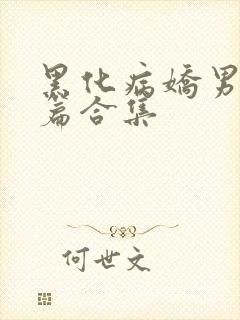 黑化病嬌男
篇合集
何世文